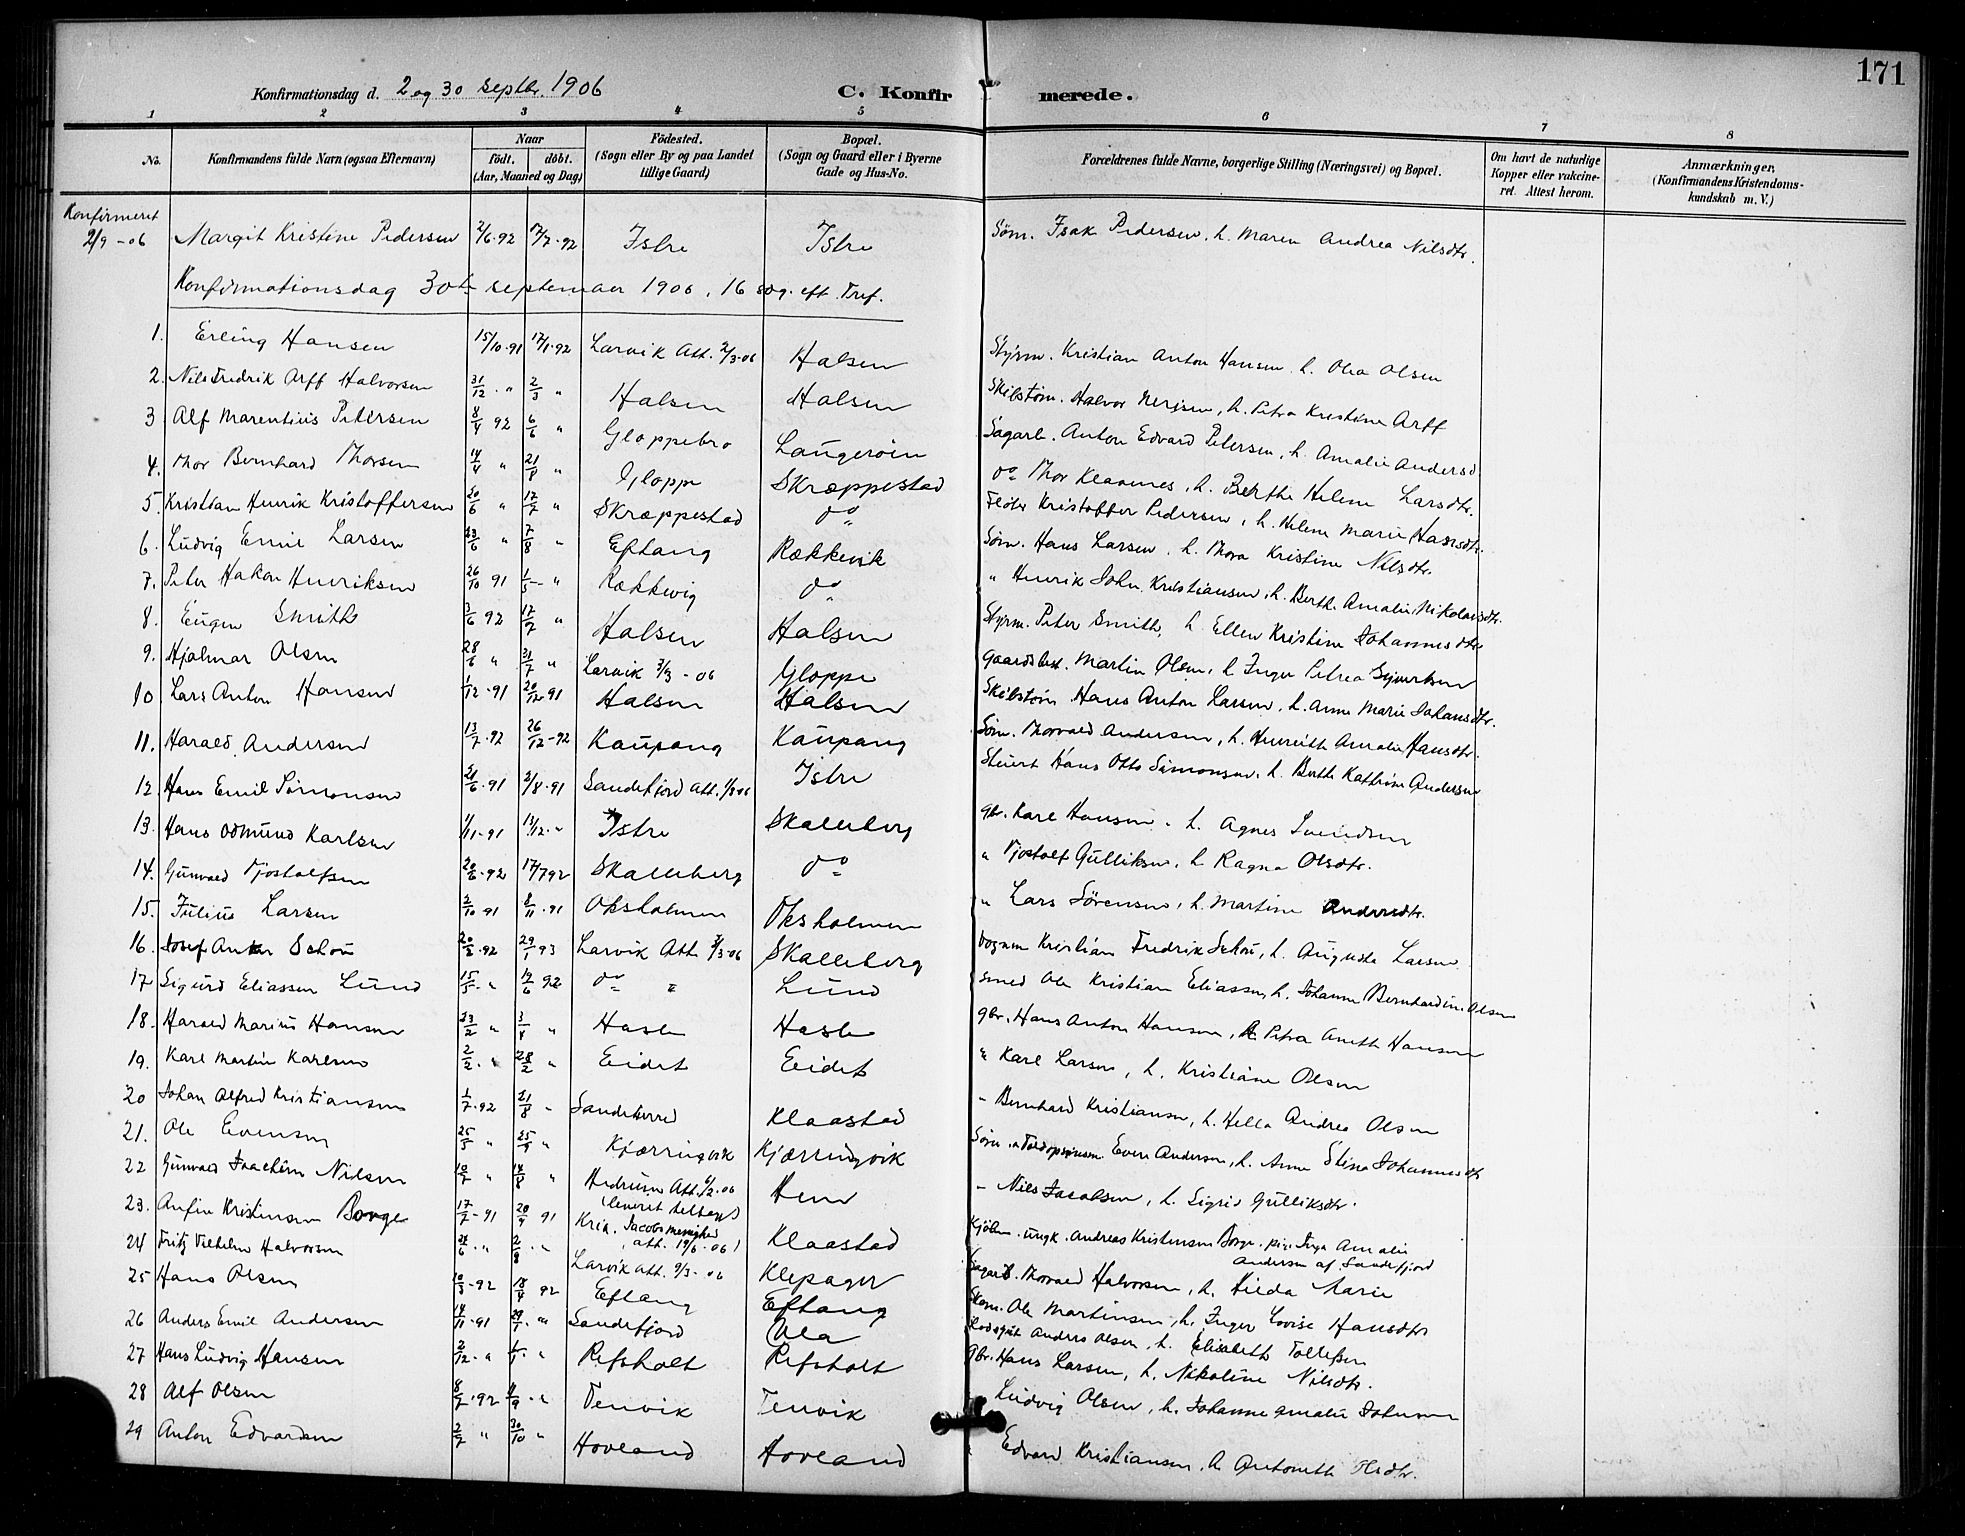 171
Konfirmationsdag d. 2 og 30 septbr. 1906
C. Konfirmerede.
1 2 3 4 5 6 7 8
No.
Konfirmandens fulde Navn (ogsaa Efternavn)
Naar
født. døbt.
(Aar, Maaned og Dag)
Fødested.
(Sogn eller By og paa Landet
tillige Gaard)
Bopæl.
(Sogn og Gaard eller i Byerne
Gade og Hus-No.
Forældrenes fulde Navne, borgerlige Stilling (Næringsvei) og Bopæl.
Om havt de naturlige
Kopper eller vakcine-
ret. Attest herom.
Anmærkninger,
(Konfirmandens Kristendoms-
kundskab m. V.)
Konfirmeret
2/9 - 06 Margit Kristine Pedersen 2/6.92 17/7.92 Istre Istre Søm. Isak Pedersen, h. Maren Andrea Nilsdtr.
Konfirmationsdag 30te september 1906, 16 søg. eft. Tref.
1. Erling Hansen 15/10.91 17/1.92 Larvik Att. 2/3.06 Halsen Styrm. Kristian Anton Hansen h. Olea Olsen
2. Nils Fredrik Arff Halvorsen 31/12 . " 2/3 " Halsen Halsen Skibstøm. Halvor Nerjsen, h. Petra Kristine Arff
3 Alf Marentius Petersen 8/4 92 6/6 " Gloppebro Laugerøien Sagarb. Anton Edvard Petersen, h. Amalie Andersd
4. Thor Bernhard Thorsen 14/4 " 21/8 " Gloppe Skræppestad do Thor Klavenes, h. Berthe Helene Larsdtr.
5. Kristian Henrik Kristoffersen 20/6 " 17/7 " Skræppestad do Kristoffer Pedersen, h. Helene Marie Hansdtr.
6. Ludvig Emil Larsen 23/6 " 7/8 " Eftang Rækkevik Søm. Hans Larsen, h. Thora Kristine Nilsdtr.
7. Peter Hakon Henriksen 26/10 91 1/5 - " Rækkevig do " Henrik John Kristiansen, h. Berth. Amalie Nikolaisdtr.
8. Eugen Smith 3/6 92 17/7 " Halsen Halsen Styrm. Peter Smith, h. Ellen Kristine Johannesdtr
9. Hjalmar Olsen 28/6 " 31/7 " Larvik 3/3 - 06 Gloppe Gaardsbest. Martin Olsen, h Inger Petrea Sjurtsen
10 Lars Anton Hansen 1/12.91 20/12 91 Halsen Halsen Skibstøm Hans Anton Larsen, h. Anne Marie Johansdtr.
11. Harald Andersen 13/7.92 26/12 - 92 Kaupang Kaupang Søm. Thorvald Andersen, h. Henriette Amalie Hansdtr.
12. Hans Emil Simonsen 21/6.91 2/8.91 Sandefjord Att. 1/3 06 Istre Stuert Hans Otto Simonsen, h. Berthe Kathrine Andersen
13. Hans Odmund Karlsen 1/11.91 13/12 . " Istre Skalleberg gbr. Karl Hansen, h. Agnes Svendsen
14. Gunvald Tjostolfsen 20/6.92 17/7 92 Skalleberg do " Tjostolf Gulliksen, h. Ragna Olsdtr.
15. Julius Larsen 2/10 91 8/11 . 91 Oksholmen Oksholmen " Lars Sørensen, h. Martine Andersdtr.
16. Josef Anker Schou 20/2.92 29/1 93 Larvik Att. 3/3.06 Skalleberg Vognm Kristian Fredrik Schou, h. Augusta Larsen
17. Sigurd Eliassen Lund 15/5. " 12/6 92 do " Lund smed Ole Kristian Eliassen, h. Johanne Bernhardine Olsen
18. Harald Marius Hansen 23/2 " 3/4 " Hasle Hasle gbr. Hans Anton Hansen, h. Petra Aneth Hansen
19. Karl Martin Karlsen 2/2. " 28/2 " Eidet Eidet " Karl Larsen, h. Kristiane Olsen
20 Johan Alfred Kristiansen 1/7.92 21/8 " Sandeherred Klaastad - Bernhard Kristiansen, h. Hella Andrea Olsen
21. Ole Evensen 25/5 " 25/9 " Kjærringvik Kjærringvik Søm. Even Andersen, h. Anne Stina Johannesdtr
22 Gunvald Joachim Nilsen 10/7 " 14/8 " Hedrum Att. 4/2.06 Hem - Nils Jacobsen, h. Sigrid Gulliksdtr.
(leveret tilbage)
23. Anfin Kristensen Borge 17/7 - 91 20/9 91 Kria. Jacobs menighed att. 19/6 - 06) Klaastad Kjøbm. ungk. Andreas Kristensen Borge. pig. Inga Amalie
Andersen af Sandefjord
24 Fritz Vilhelm Halvorsen 24/6 . " 2/8 . " Larvik att. 9/3 - 06 Klepager Sagarb. Thorvald Halvorsen, h. Hilda Marie
25 Hans Olsen 10/3 - 92 18/4 92 Eftang Eftang Skom. Ole Martinsen, h. Inger Lovise Hansdtr
26 Anders Emil Andersen 14/11.91 Sandefjord Ula Anders Olsen, h. Elisabeth Tollefsen
27 Hans Ludvig Hansen 2/12. " 1/1 . " Refsholt Refsholt gbr. Hans Larsen, h. Nikoline Nilsdtr.
28 Alf Olsen 8/7.92 4/9 . " Tenvik Tenvik Ludvig Olsen, h. Johanne Amalie Johnsen
29 Anton Edvardsen 2/9 " 30/10 " Hovland Hovland Edvard Kristiansen, h Antonette Olsdtr.